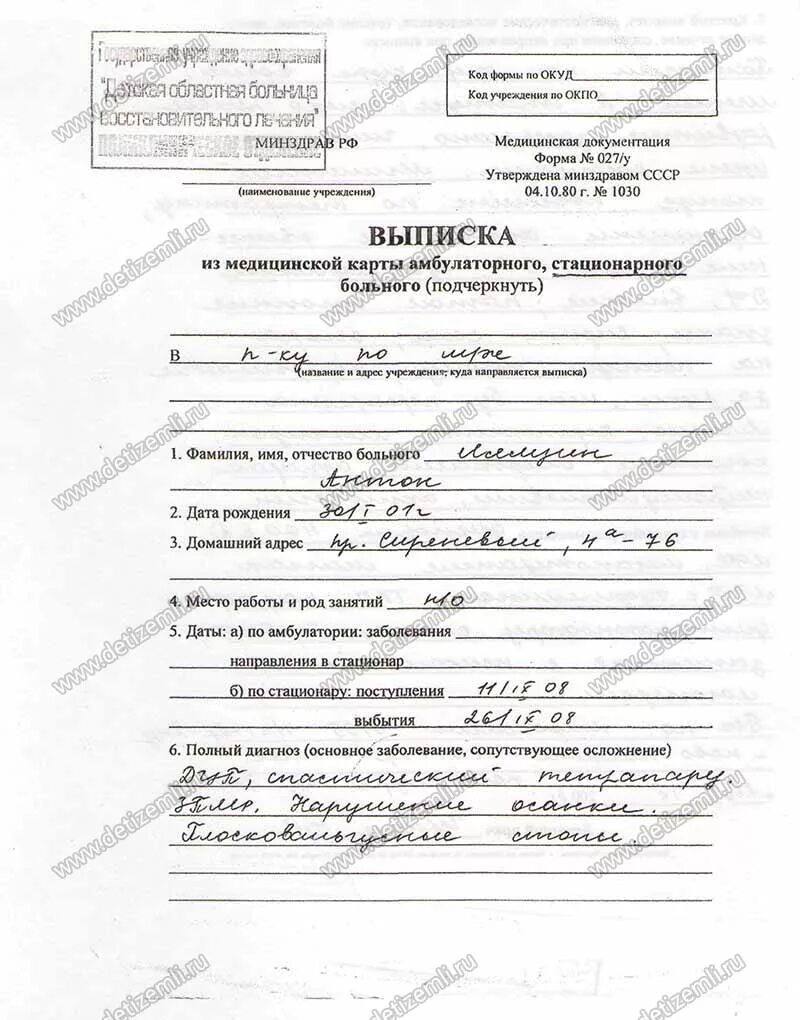 Государственное учреждение здравоохранения
"Детская областная больница
восстановительного лечения"
МИНЗДРАВ РФ
(наименование учреждения)
Код формы по ОКУД
Код учреждения по ОКПО
Медицинская документация
Форма № 027/у
Утверждена минздравом СССР
04.10.80 г. № 1030
ВЫПИСКА
из медицинской карты амбулаторного, стационарного
больного (подчеркнуть)
В п-ку по м/ж
(название и адрес учреждения, куда направляется выписка)
1. Фамилия, имя, отчество больного
Антон
2. Дата рождения 30/I 01г
3. Домашний адрес пр. Сиреневый, 4а - 76
4. Место работы и род занятий н/о
5. Даты: а) по амбулатории: заболевания
направления в стационар
б) по стационару: поступления 11/IX 08
выбытия 26/IX 08
6. Полный диагноз (основное заболевание, сопутствующее осложнение)
ДЦП, спастический тетрапарез.
ЗПМР. Нарушение осанки.
Плосковальгусные стопы.
www.detizemli.ru